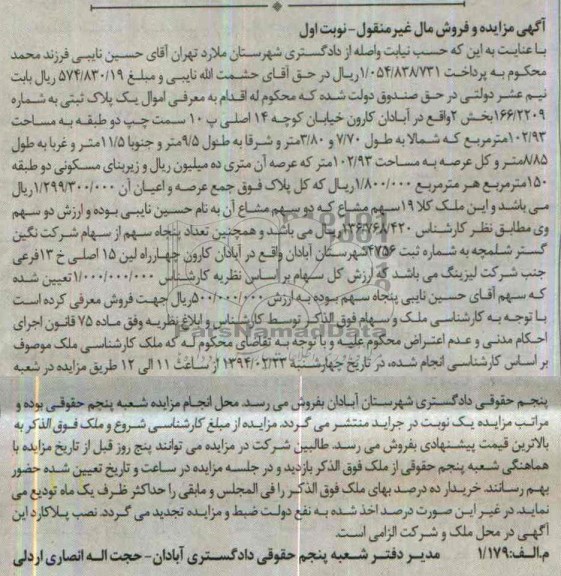 آگهی مزایده و فروش مال غیر منقول - نوبت اول
با عنایت به این که حسب نیابت واصله از دادگستری شهرستان ملارد تهران آقای حسین نایبی فرزند محمد
محکوم به پرداخت ۱/۰۵۴/۸۳۸/۷۳۱ریال در حق آقای حشمت الله نایبی و مبلغ ۵۷۴/۸۳۰/۱۹ ریال بابت
نیم عشر دولتی در حق صندوق دولت شده که محکوم له اقدام به معرفی اموال یک پلاک ثبتی به شماره
۱۶۶/۲۲۰۹بخش ۲واقع در آبادان کارون خیابان کوچه ۱۴ اصلی پ ۱۰ سمت چپ دو طبقه به مساحت
۱۰۲/۹۳مترمربع که شمالا به طول ۷/۷۰ و ۳/۸۰متر و شرقا به طول ۹/۵متر و جنوبا ۱۱/۵متر و غربا به طول
۸/۸۵متر و کل عرصه به مساحت ۱۰۲/۹۳متر که عرصه آن متری ده میلیون ریال و زیربنای مسکونی دو طبقه
۱۵۰مترمربع هر مترمربع ۱/۸۰۰/۰۰۰ریال که کل پلاک فوق جمع عرصه و اعیان آن ۱/۲۹۹/۳۰۰/۰۰۰ریال
می باشد و این ملک کلا ۱۹سهم مشاع که دو سهم مشاع آن به نام حسین نایبی بوده و ارزش دو سهم
وی مطابق نظر کارشناس ۱۳۶/۷۶۸/۴۲۰ریال می باشد و همچنین تعداد پنجاه سهم از سهام شرکت نگین
گستر شلمچه به شماره ثبت ۴۷۵۶شهرستان آبادان واقع در آبادان کارون چهارراه لین ۱۵ اصلی خ ۱۳فرعی
جنب شرکت لیزینگ می باشد که ارزش کل سهام بر اساس نظریه کارشناس ۱/۰۰۰/۰۰۰/۰۰۰تعیین شده
که سهم آقای حسین نایبی پنجاه سهم بوده به ارزش ۵۰۰/۰۰۰/۰۰۰ریال جهت فروش معرفی کرده است
با توجه به کارشناسی ملک و سهام فوق الذکر توسط کارشناس و ابلاغ نظریه وفق ماده ۷۵ قانون اجرای
احکام مدنی و عدم اعتراض محکوم علیه و با توجه به تقاضای محکوم له که ملک کارشناسی ملک موصوف
بر اساس کارشناسی انجام شده، در تاریخ چهارشنبه ۱۳۹۴/۰۲/۲۳ از ساعت ۱۱ الی ۱۲ طریق مزایده در شعبه
پنجم حقوقی دادگستری شهرستان آبادان بفروش می رسد. محل انجام مزایده شعبه پنجم حقوقی بوده و
مراتب مزایده یک نوبت در جراید منتشر می گردد. مزایده از مبلغ کارشناسی شروع و ملک فوق الذکر به
بالاترین قیمت پیشنهادی بفروش می رسد. طالبین شرکت در مزایده می توانند پنج روز قبل از تاریخ مزایده با
هماهنگی شعبه پنجم حقوقی از ملک فوق الذکر بازدید و در جلسه مزایده در ساعت و تاریخ تعیین شده حضور
بهم رسانند. خریدار ده درصد بهای ملک فوق الذکر را فی المجلس و مابقی را حداکثر ظرف یک ماه تودیع می
نماید. در غیر این صورت درصد اخذ شده به نفع دولت ضبط و مزایده تجدید می گردد. نصب پلاکارد این
آگهی در محل ملک و شرکت الزامی است.
م.الف:۱/۱۷۹ مدیر دفتر شعبه پنجم حقوقی دادگستری آبادان - حجت اله انصاری اردلی